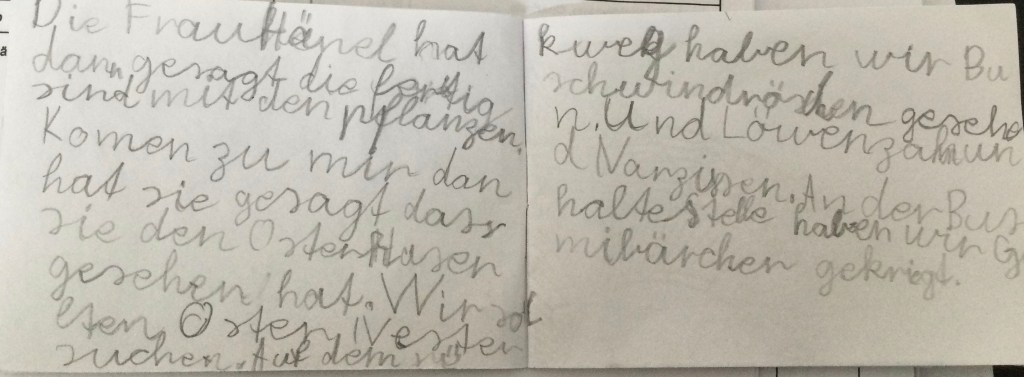 Die Frau Hänel hat
dann gesagt die fertig
sind mit den pflanzen.
Komen zu mir dan
hat sie gesagt dass
sie den Osterhasen
gesehen hat. Wir sol
lten Oster Nester
suchen. Auf dem rü
kweg haben wir Bu
schwindröschen gesehe
n. Und Löwenzahn un
d Nanzissen. An der Bus
haltestelle haben wir G
mibärchen gekriegt.